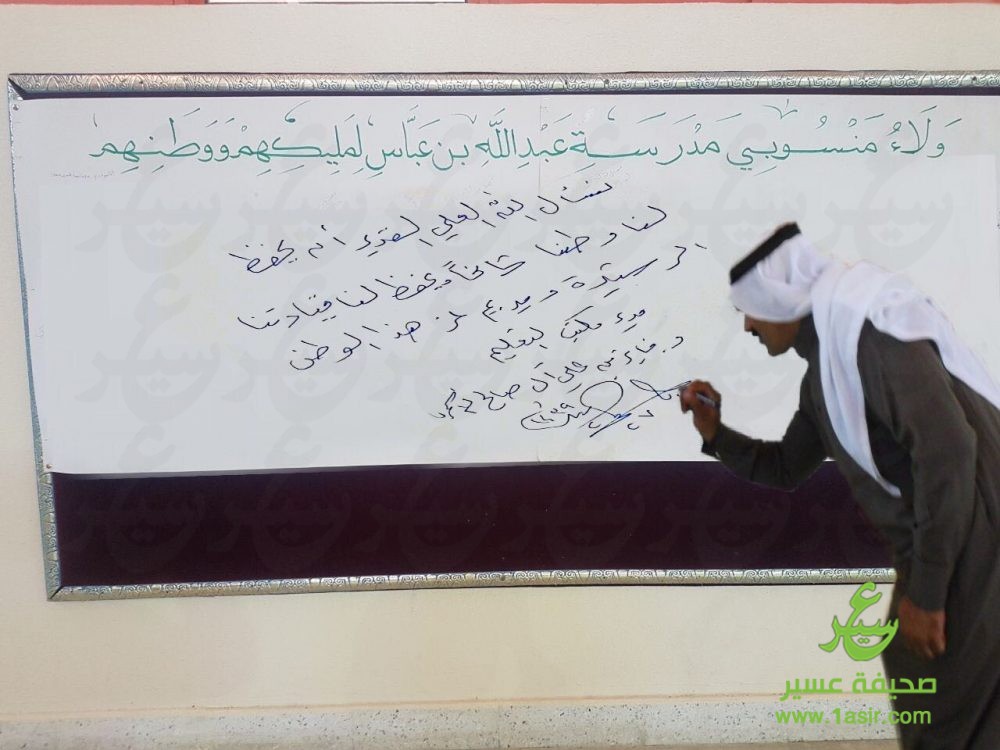 وَلَاءُ مَنْسُوبِي مَدْرَسَةِ عَبْدِاللَّهِ بن عَبَّاسٍ لِمَلِيكِهِمْ وَوَطَنِهِم
نسأل الله العلي القدير أن يحفظ
لنا وطننا شامخاً ويحفظ لنا قيادتنا
الرشيدة ويديم عز هذا الوطن
مدير مكتب التعليم
د. علي آل
عسير
صحيفة عسير
www.1asir.com